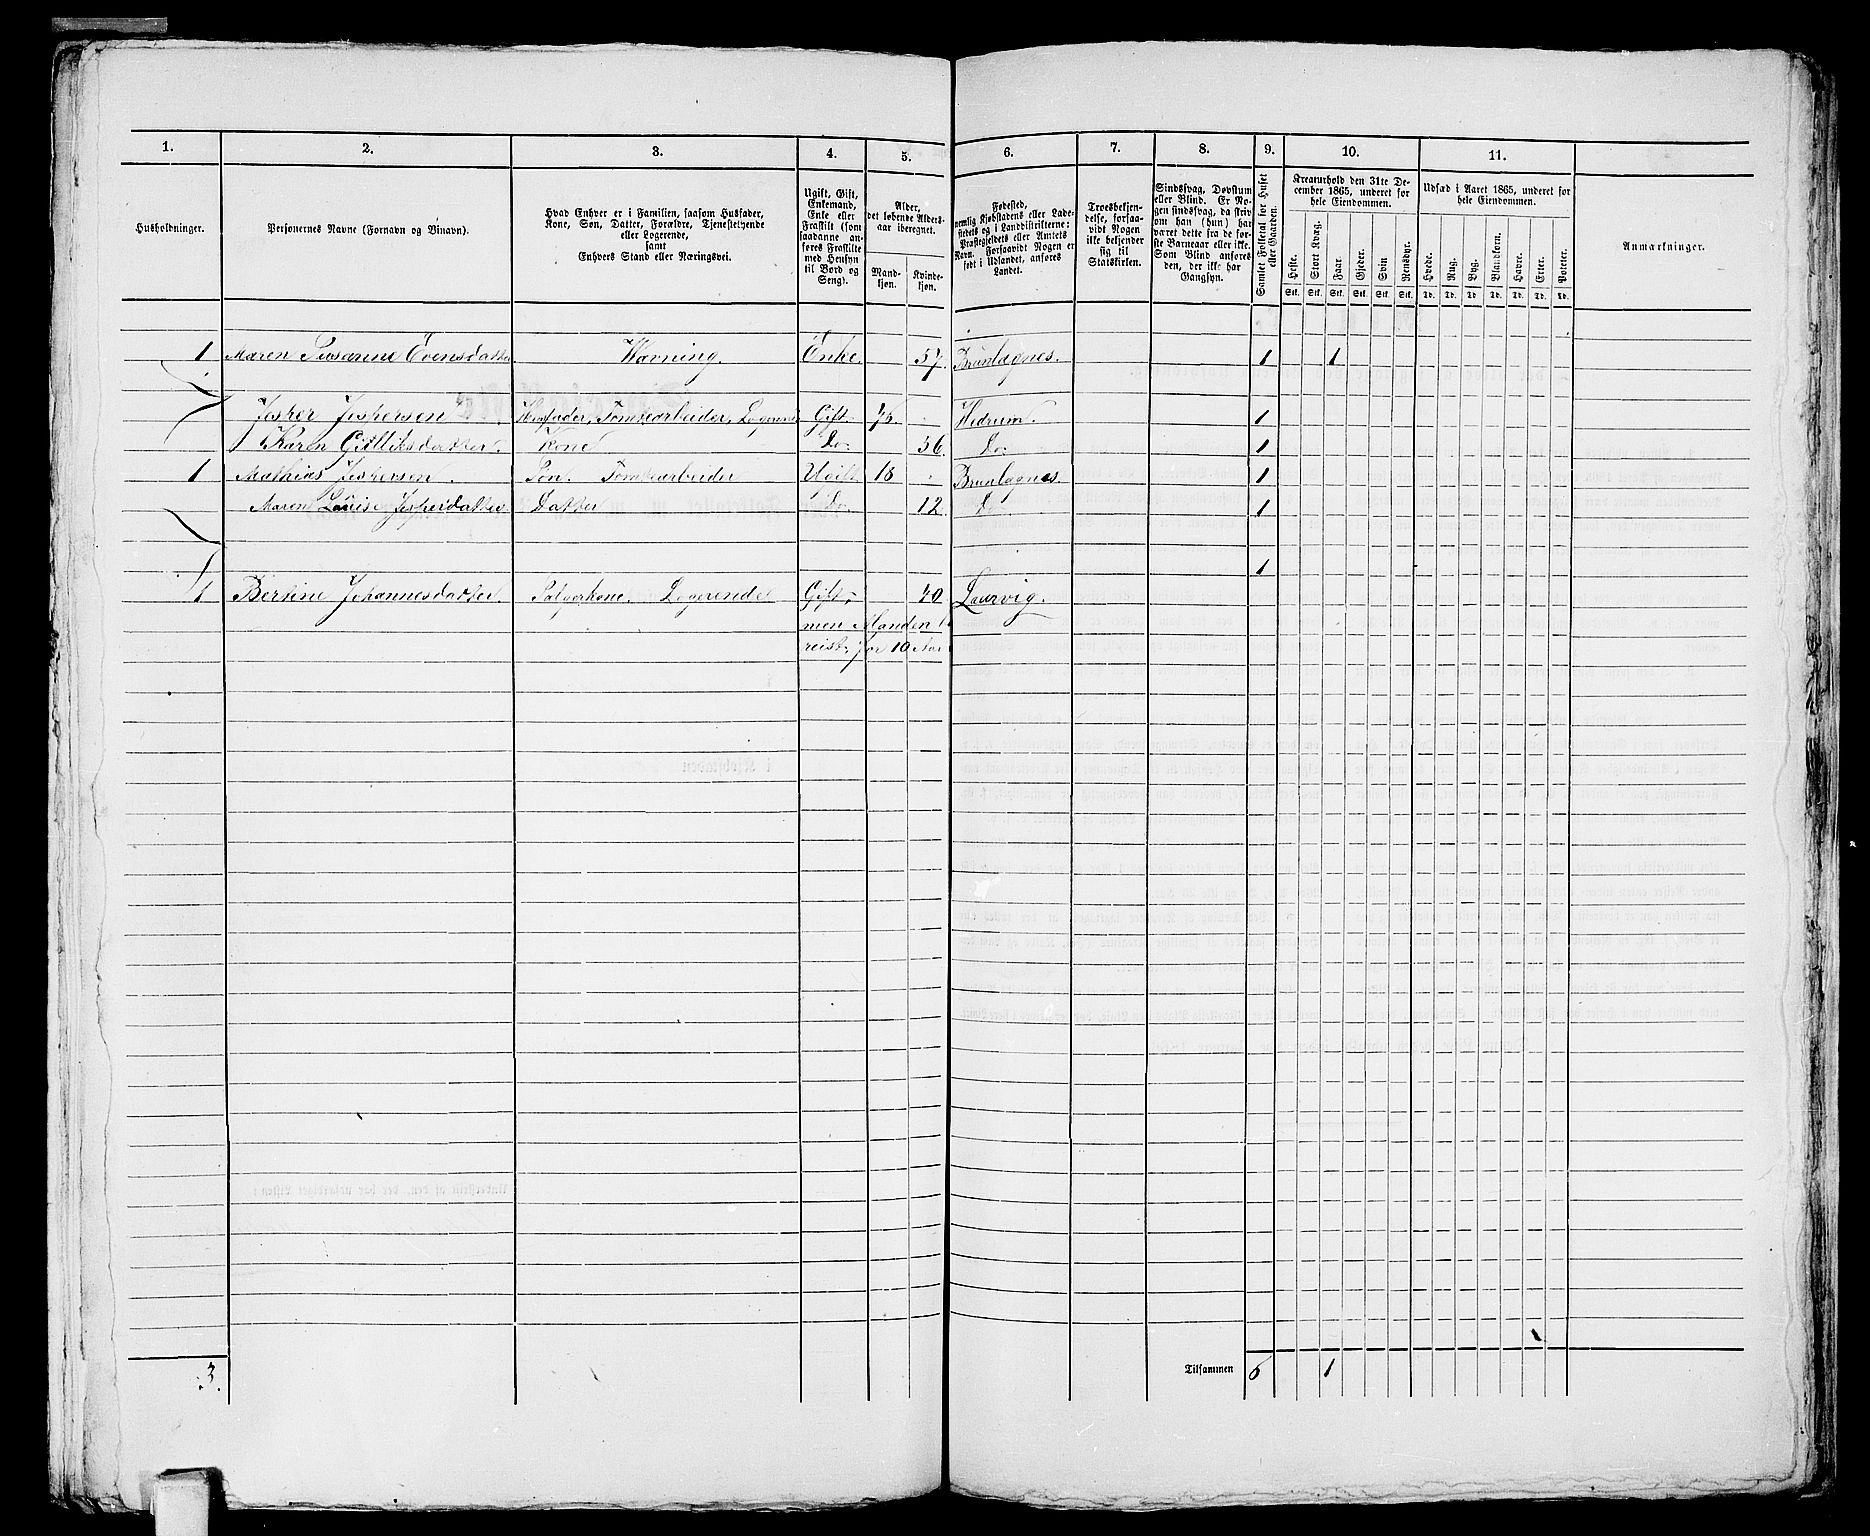 1. 2. 3. 4. 5. 6. 7. 8. 9. 10. 11.
Husholdninger.
Personernes Navne (Fornavn og Vinavn).
Hvad Enhver er i Familien, saasom Husfader,
Kone, Søn, Datter, Forældre, Tjenestetyende
eller Logerende,
samt
Enhvers Stand eller Næringsvei.
Ugift, Gift,
Enkemand,
Enke eller
Fraskilt (som
saadanne an-
føres Fraskilte
med Hensyn
til Bord og
Seng).
Alder,
det løbende Alders-
aar iberegnet.
Mand-
kjøn.
Kvinde-
kjøn.
Fødested,
nemlig Kjøbstadens eller Lade-
stedets og i Landdistrikterne:
Præstegjeldets eller Amtets
Navn. Forsaavidt Nogen er
født i Udlandet, anføres
Landet.
Troesbekjen-
delse, forsaa-
vidt Nogen
ikke bekjender
sig til
Statskirken.
Sindssvag, Døvstum
eller Blind. Er No-
gen sindssvag, da skriv
om han (hun) har
været dette fra de før-
ste Barneaar eller ikke.
Som Blind anføres
den, der ikke har
Gangsyn.
Samlet Folketal for Huset
eller Gaarden.
Kreaturhold den 31te De-
cember 1865, underet for
hele Eiendommen.
Heste. Stort Kvæg. Faar. Gjeder. Sviin. Rensdyr.
Stk. Stk. Stk. Stk. Stk. Stk.
Udsæd i Aaret 1865, underet for
hele Eiendommen.
Hvede. Rug. Byg. Blandkorn. Havre. Erter. Poteter.
Td. Td. Td. Td. Td. Td. Td.
Anmærkninger.
1 Maren Susanne Evensdatter Vævning. Enke. 57. Brunlagnes. 1 1
Jesper Jespersen Husfader, Tomtearbeider, Logerende Gift. 45. Hedrum. 1
Karen Gulliksdatter. Kone Do. 56. Do. 1
1 Mathias Jespersen. Søn. Tomtearbeider Ugift 18 Brunlagnes. 1
Maren Louise Jesperdatter. Datter Do. 12. Do. 1
1
1 Bertine Johannesdatter. Logerende Gift, 40. Laurvig.
men Manden
reist for 10 Aar
3. Tilsammen 6 1